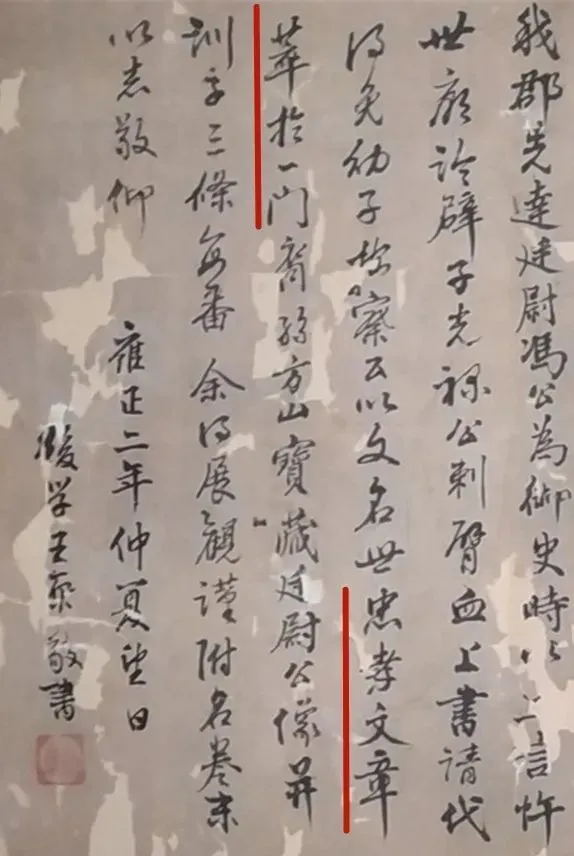 我郡先達廷尉馮公為御史時以上言忤
世廟論辟子光祿公刺臂血上書請代
得免幼子按察公以文名世忠孝文章
萃於一門裔孫方山寶藏廷尉公像并
訓子三條舟番余得展觀謹附名卷末
以志敬仰
雍正二年仲夏望日
後學王奕敬書